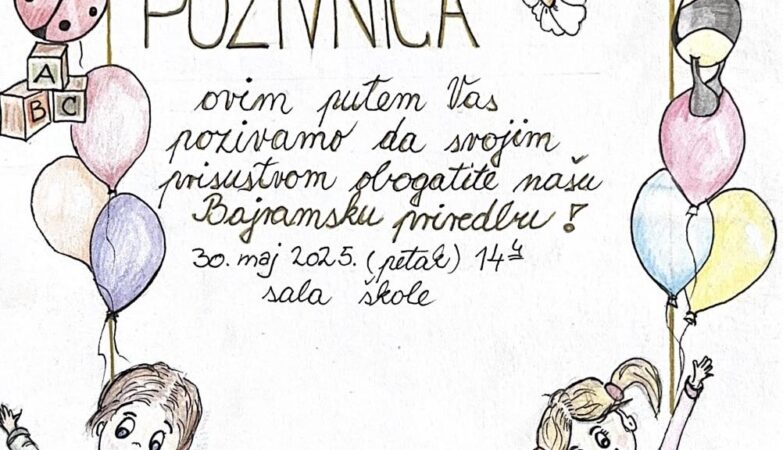 POZIVNICA
A
B C
ovim putem Vas
pozivamo da svojim
prisustvom obogatite našu
Bajramsku priredbu!
30. maj 2025. (petak) 14 h
sala škole